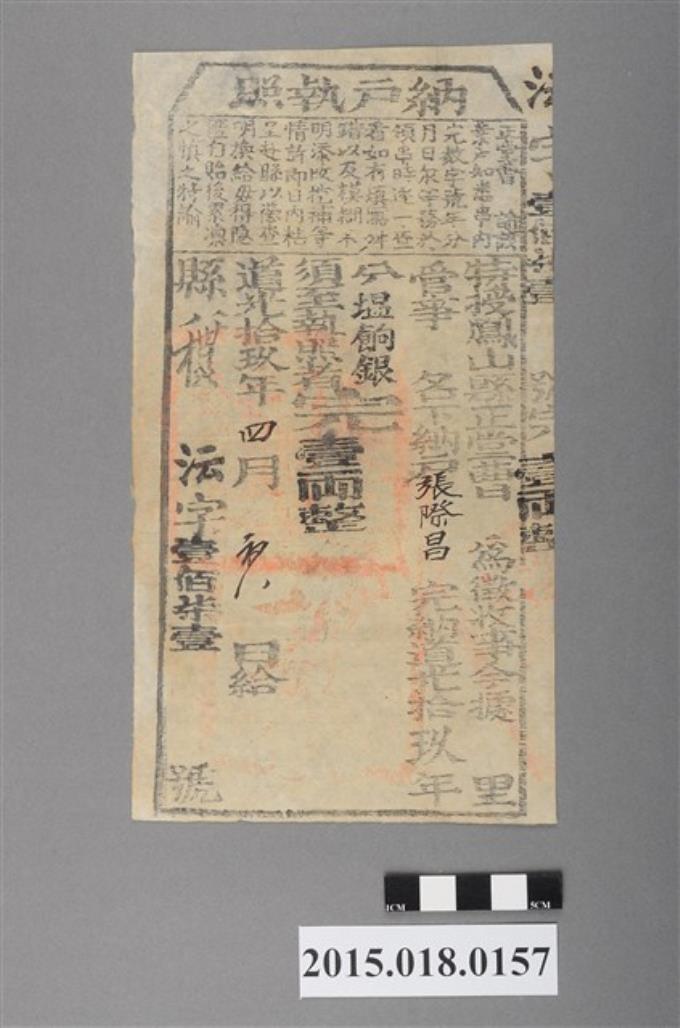 納戶執照
正堂曹 諭
業戶知悉串內
完數字號年分
月日家等務於
領串時逐一查
看如有填寫舛
錯以及模糊不
明添改挖補等
情許即日內枯
呈赴縣以憑查
明換給毋得隱
匿自貽後累凜
之慎之特諭
法字壹佰柒壹號完壹兩整
特授鳳山縣正堂曹 為徵收事今據 里
管事 名下納戶張際昌 完納道光拾玖年
分塭餉銀
須至執照者完壹兩整
道光拾玖年四月 日給
縣
法字壹佰柒壹 號
1CM
5CM
2015.018.0157